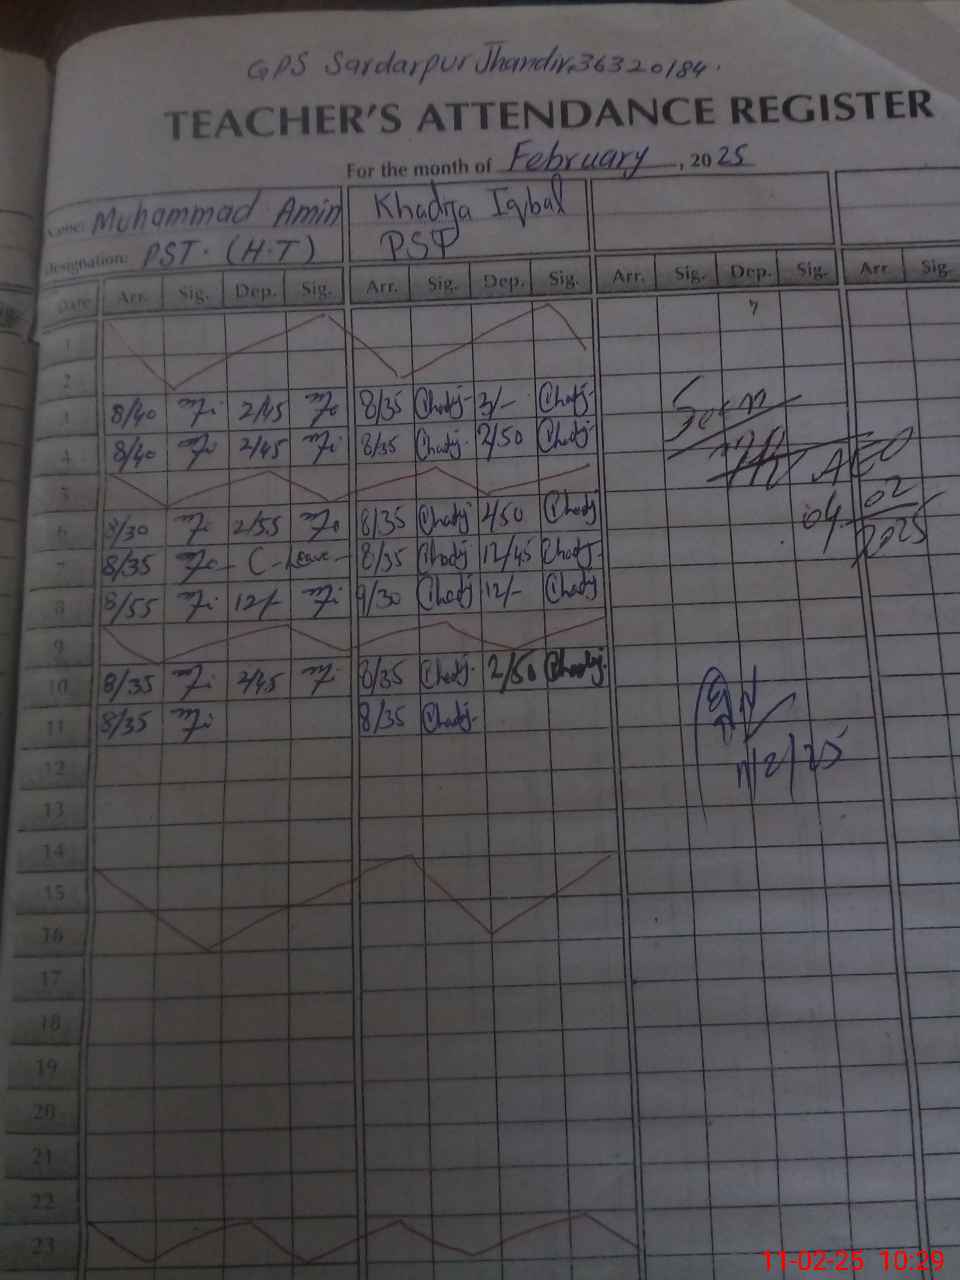 GPS Sardarpur Jhandir 36320184.
TEACHER'S ATTENDANCE REGISTER
For the month of February, 2025
Name: Muhammad Amin Khadija Iqbal
Designation: PST. (H.T) PST
Date Arr. Sig. Dep. Sig. Arr. Sig. Dep. Sig. Arr. Sig. Dep. Sig. Arr Sig.
1
2
8/40 2/45 8/35 3/-
4 8/40 2/45 8/35 2/50
5
6 8/30 2/55 8/35 2/50
7 8/35 C-Leave 8/35 12/45
8 8/55 12/- 9/30 12/-
9
10 8/35 2/45 8/35 2/50
11 8/35 8/35
12
13
14
15
16
17
18
19
20
21
22
23
Seen
AEO
04 02
2025
11/2/25
11-02-25 10:29